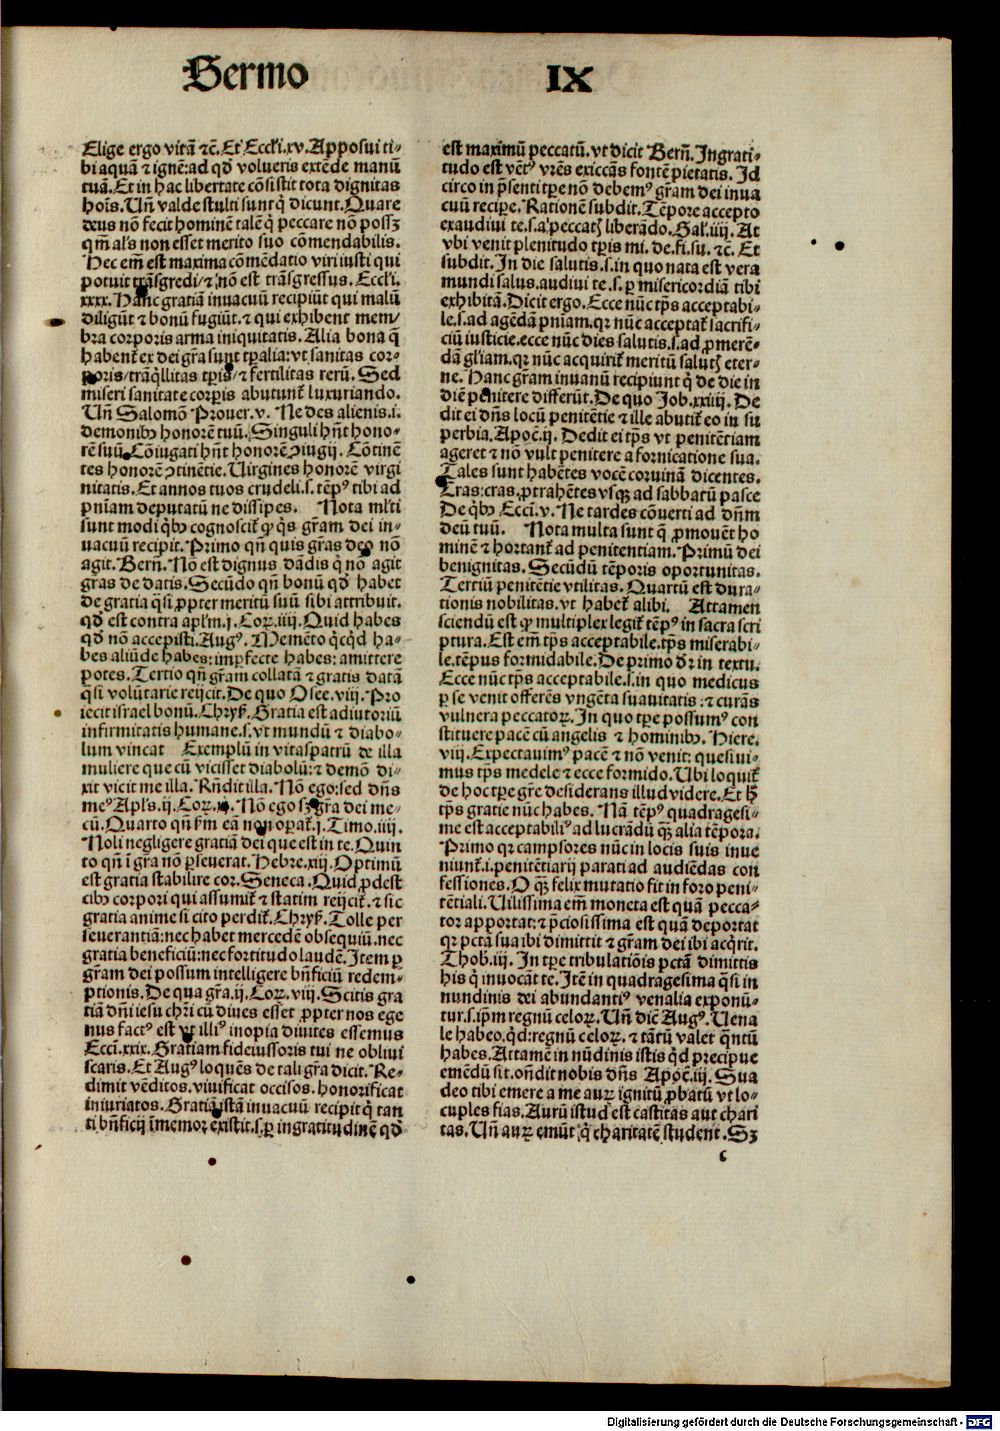 Sermo IX
Elige ergo vitā ⁊c̄. Et Eccl'i.xv. Apposui ti⸗
bi aquā ⁊ ignē:ad qd̄ volueris extēde manū
tuā. Et in hac libertate cōsistit tota dignitas
hoīs. Uñ valde stulti sunt q̄ dicunt. Quare
deus nō fecit hominē talē q̄ peccare nō possꝫ
qm̄ al's non esset merito suo cōmendabilis.
Hec em̄ est maxima cōmēdatio viri iusti qui
potuit trāsgredi/⁊ nō est trāsgressus. Eccl'i.
xxxi. Hanc gratiā inuacuū recipiūt qui malū
diligūt ⁊ bonū fugiūt.⁊ qui exhibent mem⸗
bra corporis arma iniquitatis. Alia bona q̄
habent̄ ex dei gr̄a sunt tp̄alia:vt sanitas cor⸗
poris/trāq̄llitas tp̄is/⁊ fertilitas rerū. Sed
miseri sanitate corp̄is abutunt̄ luxuriando.
Uñ Salomō Prouer.v. Ne des alienis.i.
demonibꝰ honorē tuū. Singuli hn̄t hono⸗
rē suū. Cōiugati hn̄t honorē ꝯiugij. Cōtinē
tes honorē ꝯtinētie. Uirgines honorē virgi
nitatis. Et annos tuos crudeli.s. tēpꝰ tibi ad
pn̄iam deputatū ne dissipes. Nota ml'ti
sunt modi q̄bꝰ cognoscit̄ ꝙ q̄s gr̄am dei in⸗
uacuū recipit. Primo qn̄ quis gr̄as deo nō
agit. Bern̄. Nō est dignus dādis q̄ nō agit
gras de datis. Secūdo qn̄ bonū qd̄ habet
de gratia q̄si ꝓpter meritū suū sibi attribuit.
qd̄ est contra apl'm.j. Coꝝ.iiij. Quid habes
qd̄ nō accepisti. Augꝰ. Memēto q̄cq̄d ha⸗
bes aliūde habes:imꝑfecte habes: amittere
potes. Tertio qn̄ gr̄am collatā ⁊ gratis datā
q̄si volūtarie reijcit. De quo Osee.viij. Pro
iecit israel bonū. Chrys̄. Gratia est adiutoriū
infirmitatis humane.s. vt mundū ⁊ diabo⸗
lum vincat Exemplū in vitaspatrū de illa
muliere que cū vicisset diabolū:⁊ demō di⸗
xit vicit me illa. Rn̄dit illa. Nō ego:sed dn̄s
meꝰ Apl's.ij. Coꝝ. Nō ego sꝫ gr̄a dei me⸗
cū. Quarto qn̄ ꝑm eā non oꝑat̄.j. Timo.iiij.
Noli negligere gratiā dei que est in te. Quin
to qn̄ ī gr̄a nō ꝑseuerat. Hebre.xij. Optimū
est gratia stabilire cor. Seneca. Quid ꝓdest
cibꝰ corpori qui assumit̄ ⁊ statim reijcit̄. ⁊ sic
gratia anime si cito perdit̄. Chrys̄. Tolle per
seuerantiā:nec habet mercedē obsequiū.nec
gratia beneficiū:nec fortitudo laudē. Item ꝑ
gr̄am dei possum intelligere bn̄ficiū redem⸗
ptionis. De qua gr̄a.ij. Coꝝ.viij. Scitis gra
tiā dn̄i iesu chr̄i cū diues esset ꝓpter nos ege
nus factꝰ est vt illiꝰ inopia diuites essemus
Ecci.xxix. Gratiam fideiussoris tui ne obliui
scaris. Et Augꝰ loquēs de tali gr̄a dicit. Re⸗
dimit vēditos.viuificat occisos.honorificat
iniuriatos. Gratiā istā inuacuū recipit q̄ tan
ti bn̄ficij īmemor existit.s.ꝑ ingratitudinē qd̄
est maximū peccatū.vt dicit Bern̄. Ingrati⸗
tudo est vētꝰ vrēs exiccās fontē pietatis. Id
circo in p̄senti tꝑe nō debemꝰ gr̄am dei inua
cuū recipe. Rationē subdit. Tēpore accepto
exaudiui te.s.a peccatꝭ liberādo. Gal̄.iiij. At
vbi venit plenitudo tp̄is mi. de.fi.su. ⁊c̄. Et
subdit. In die salutis.s.in quo nata est vera
mundi salus.audiui te.s.ꝑ misericordiā tibi
exhibitā. Dicit ergo. Ecce nūc tp̄s acceptabi⸗
le.s.ad agēdā pn̄iam.qr nūc acceptat̄ sacrifi⸗
ciū iusticie.ecce nūc dies salutis.s.ad ꝓmerē⸗
dā gl'iam.qr nūc acquirit̄ meritū salutꝭ eter⸗
ne. Hanc gr̄am inuanū recipiunt q̄ de die in
diē penitere differūt. De quo Job.xxiiij. De
dit ei dn̄s locū penitētie ⁊ ille abutit̄ eo in su
perbia. Apoc̄.ij. Dedit ei tp̄s vt penitētiam
ageret ⁊ nō vult penitere a fornicatione sua.
Tales sunt habētes vocē coruinā dicentes.
Cras:cras.ꝓtrahētes vsqꝫ ad sabbatū pasce
De q̄bꝰ Ecci.v. Ne tardes cōuerti ad dn̄m
deū tuū. Nota multa sunt q̄ ꝓmouēt ho
minē ⁊ hortant̄ ad penitentiam. Primū dei
benignitas. Secūdū tēporis oportunitas.
Tertiū penitētie vtilitas. Quartū est dura⸗
tionis nobilitas.vt habet̄ alibi. Attamen
sciendū est ꝙ multiplex legit̄ tēpꝰ in sacra scri
ptura. Est em̄ tp̄s acceptabile.tp̄s miserabi⸗
le.tēpus formidabile. De primo dr̄ in textu.
Ecce nūc tp̄s acceptabile.s.in quo medicus
ꝑ se venit offerēs vngēta suauitatis:⁊ curās
vulnera peccatoꝝ. In quo tꝑe possumꝰ con
stituere pacē cū angelis ⁊ hominibꝰ. Hiere.
viij. Expectauimꝰ pacē ⁊ nō venit: quesiui⸗
mus tp̄s medele ⁊ ecce formido. Ubi loquit̄
de hoc tꝑe gr̄e desiderans illud videre. Et h̄
tp̄s gratie nūc habes. Nā tēpꝰ quadragesi⸗
me est acceptabiliꝰ ad lucrādū qꝫ alia tēpora.
Primo qr campsores nūc in locis suis inue
niunt̄.i.penitētiarij parati ad audiēdas con
fessiones. O qꝫ felix mutatio fit in foro peni⸗
tētiali. Uilissima em̄ moneta est quā pecca⸗
tor apportat:⁊ p̄ciosissima est quā deportat
qr pctā sua ibi dimittit ⁊ gr̄am dei ibi acq̄rit.
Thob.iij. In tꝑe tribulatiōis pctā dimittis
his q̄ inuocāt te. Itē in quadragesima q̄si in
nundinis dei abundantiꝰ venalia exponū⸗
tur.s.ip̄m regnū celoꝝ. Uñ diē Augꝰ. Uena
le habeo.q̄d:regnū celoꝝ. ⁊ tātū valet q̄ntū
habes. Attamē in nūdinis istis q̄d precipue
emēdū sit.on̄dit nobis dn̄s Apoc̄.iij. Sua
deo tibi emere a me auꝝ ignitū ꝓbatū vt lo⸗
cuples fias. Aurū istud est castitas aut chari
tas. Uñ auꝝ emūt q̄ charitatē student. Sꝫ
c
Digitalisierung gefördert durch die Deutsche Forschungsgemeinschaft - DFG